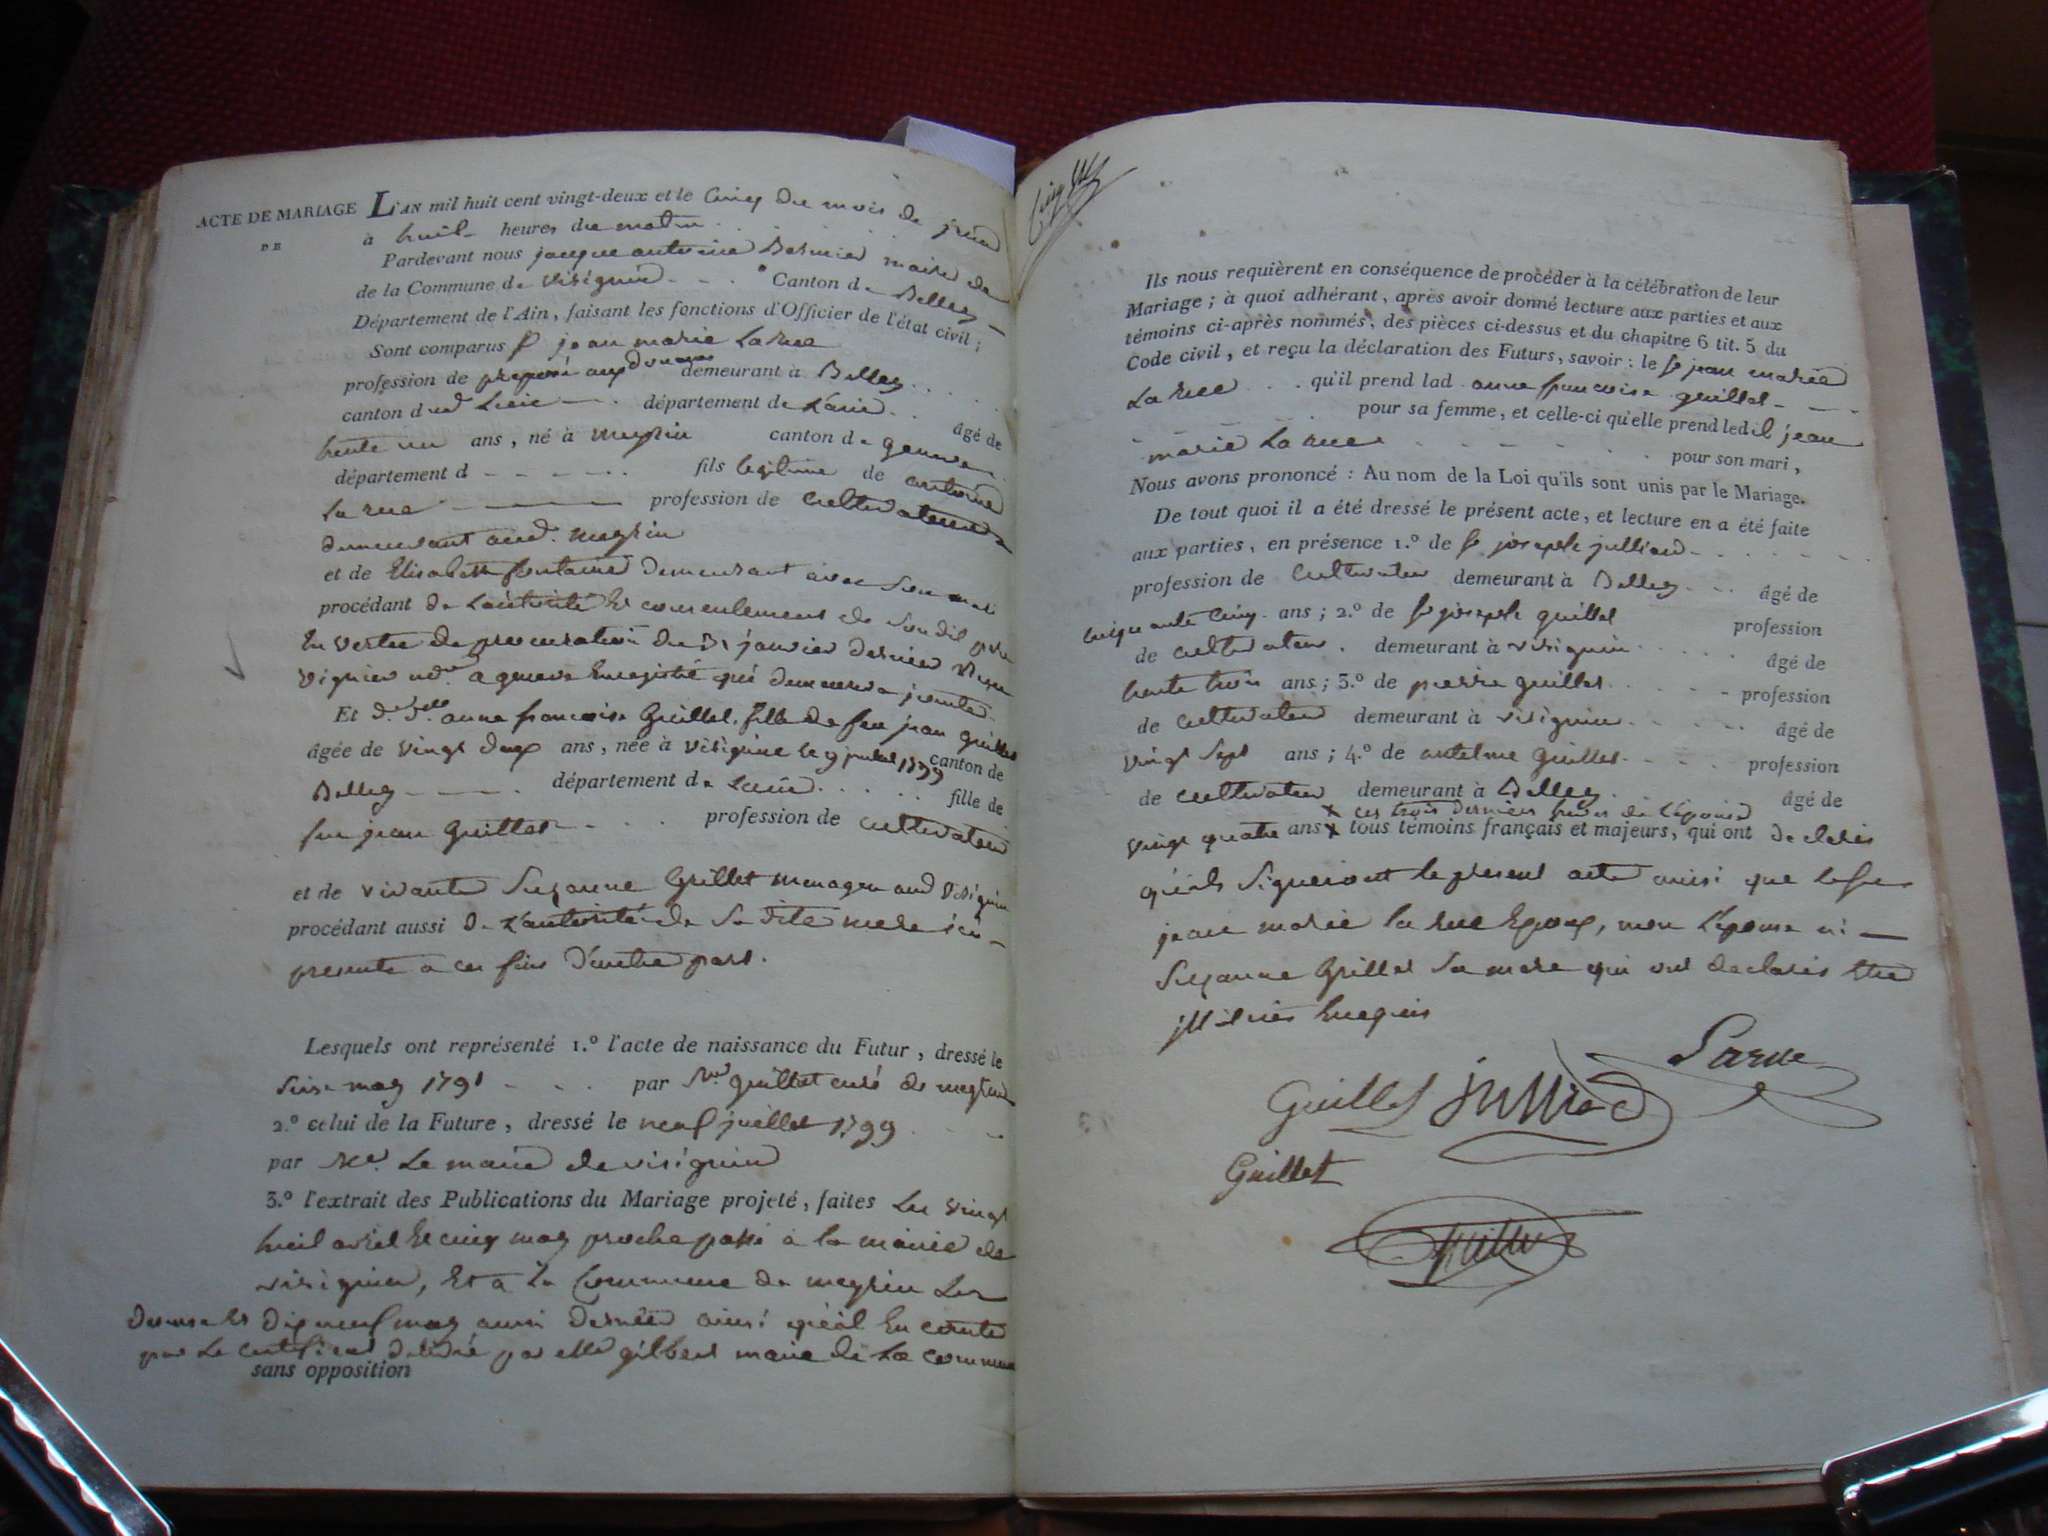 ACTE DE MARIAGE
DE
L'AN mil huit cent vingt-deux et le Cinq du mois de juin
à huit heures du matin
Pardevant nous jacque antoine Bernier maire de
de la Commune de Visignin Canton de Belley
Département de l'Ain, faisant les fonctions d'Officier de l'état civil;
Sont comparus Sr jean marie La rue
profession de préposé aux douanes demeurant à Belley
canton dud Lieu département de L'ain âgé de
trente un ans, né à meyrin canton de geneve
département d fils légitime de antoine
La rue profession de Cultivateur
demeurant aud. meyrin
et de Elisabeth fontaine demeurant avec son mari
procédant de L'autorité Et consentement de son dit père
En vertu de procuration du 31 janvier dernier
vignier not. a geneve Enregistré qui demeurera jointe
Et d. anne françoise Guillet, fille de feu jean Guillet
âgée de vingt deux ans, née à visignin le 9 juillet 1799 canton de
Belley département de L'ain fille de
feu jean Guillet profession de cultivateur
et de vivante Suzanne Grillet menagere aud Visignin
procédant aussi de L'autorité de sa dite mere ici
presente a ces fins d'autre part.
Lesquels ont représenté 1.º l'acte de naissance du Futur, dressé le
seize may 1791 par Mr guillet curé de meyrin
2.º celui de la Future, dressé le neuf juillet 1799
par Mr. Le maire de visignin
3.º l'extrait des Publications du Mariage projeté, faites Les vingt
huit avril Et cinq may proche passé à la mairie de
visignin, Et a La Commune de meyrin Les
douze Et dix neuf may aussi dernier ainsi qu'il En conste
par Le certificat délivré par gilbert maire de La commune
sans opposition
Ils nous requièrent en conséquence de procéder à la célébration de leur
Mariage; à quoi adhérant, après avoir donné lecture aux parties et aux
témoins ci-après nommés, des pièces ci-dessus et du chapitre 6 tit. 5 du
Code civil, et reçu la déclaration des Futurs, savoir: le Sr jean marie
La rue qu'il prend lad anne françoise guillet
pour sa femme, et celle-ci qu'elle prend ledit jean
marie La rue pour son mari,
Nous avons prononcé: Au nom de la Loi qu'ils sont unis par le Mariage.
De tout quoi il a été dressé le présent acte, et lecture en a été faite
aux parties, en présence 1.º de Sr joseph julliard
profession de Cultivateur demeurant à Belley âgé de
cinquante Cinq ans; 2.º de Sr joseph guillet profession
de cultivateur demeurant à visignin âgé de
trente trois ans; 3.º de pierre guillet profession
de cultivateur demeurant à visignin âgé de
vingt sept ans; 4.º de antelme guillet profession
de cultivateur demeurant à Belley âgé de
x ces trois derniers freres de L'épouse
vingt quatre ans x tous témoins français et majeurs, qui ont declaré
qu'ils signeront le present acte ainsi que le sr
jean marie la rue Epoux, non L'épouse ni
Suzanne Grillet sa mere qui ont declaré etre
illitérés Enequis
Larue
Guillet Julliard
Guillet
Guillet